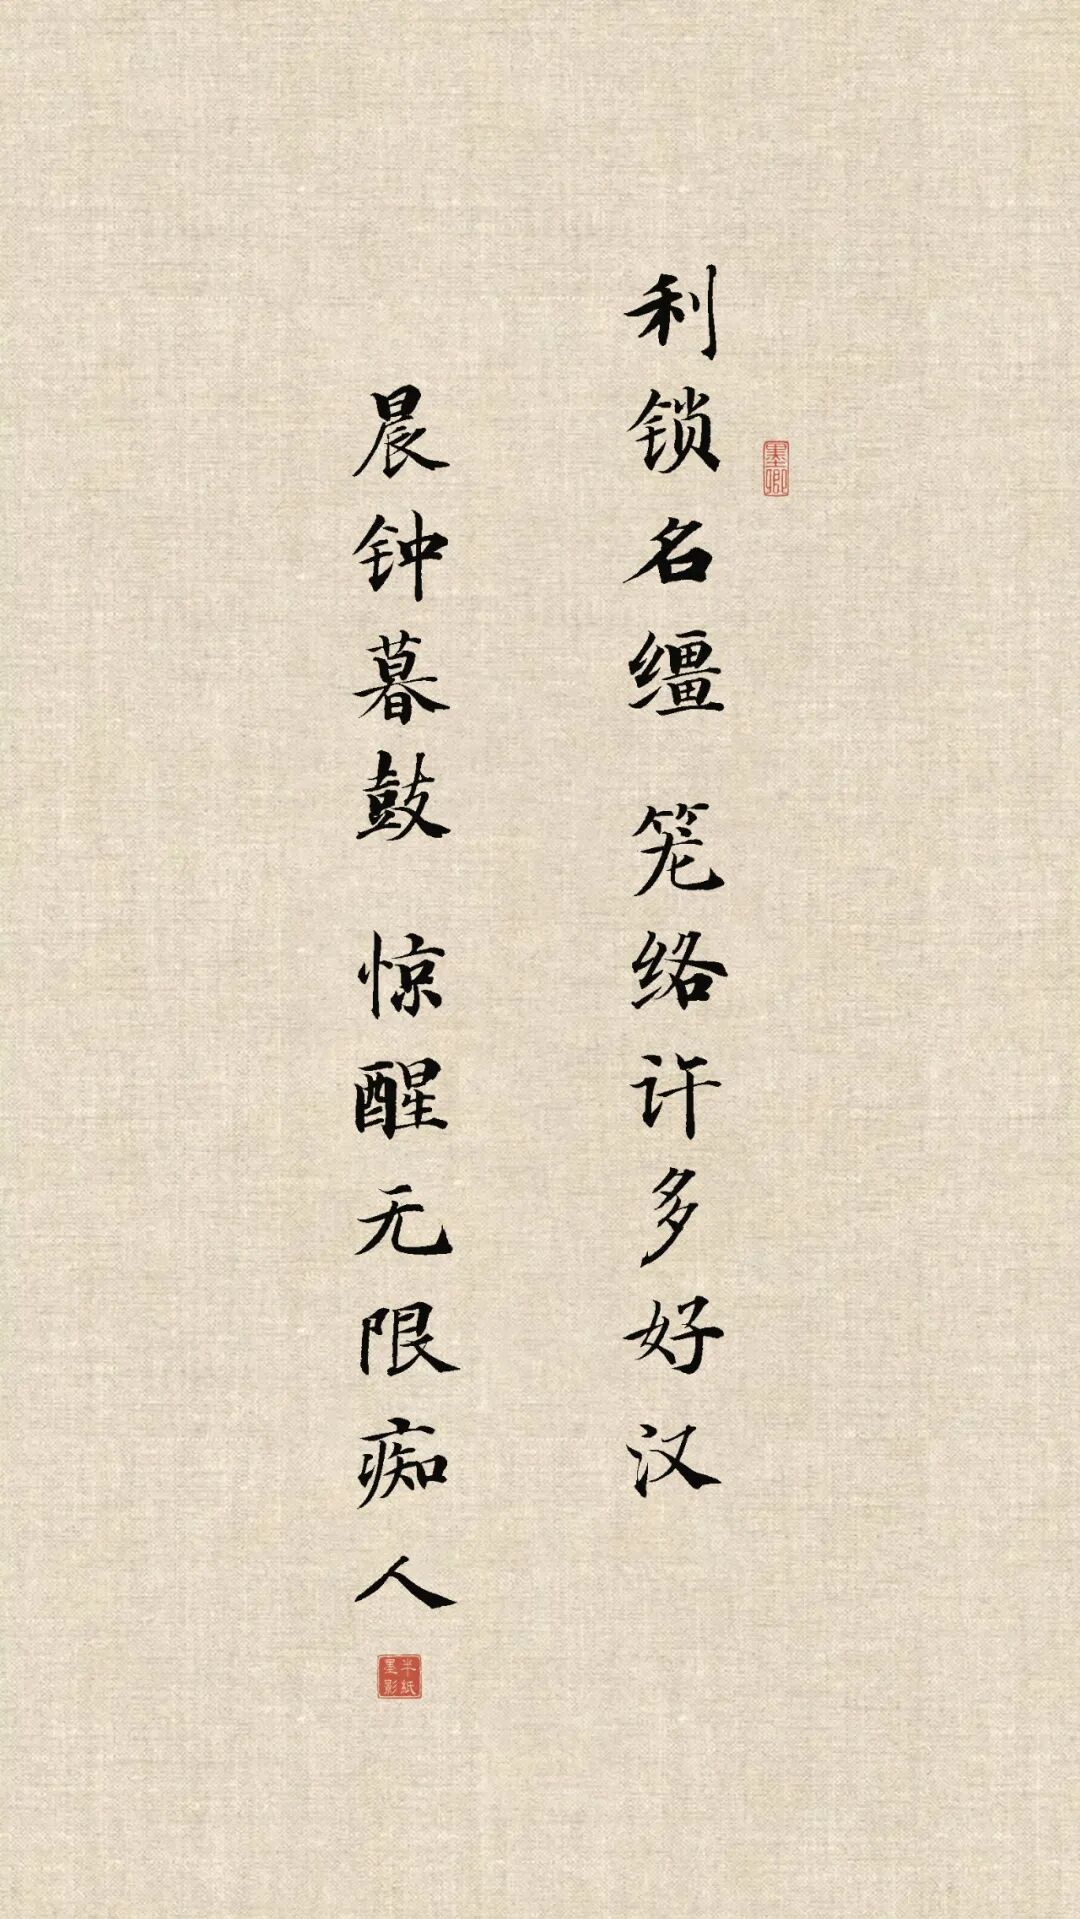 利锁名缰 笼络许多好汉
墨卿
晨钟暮鼓 惊醒无限痴人
半纸墨影